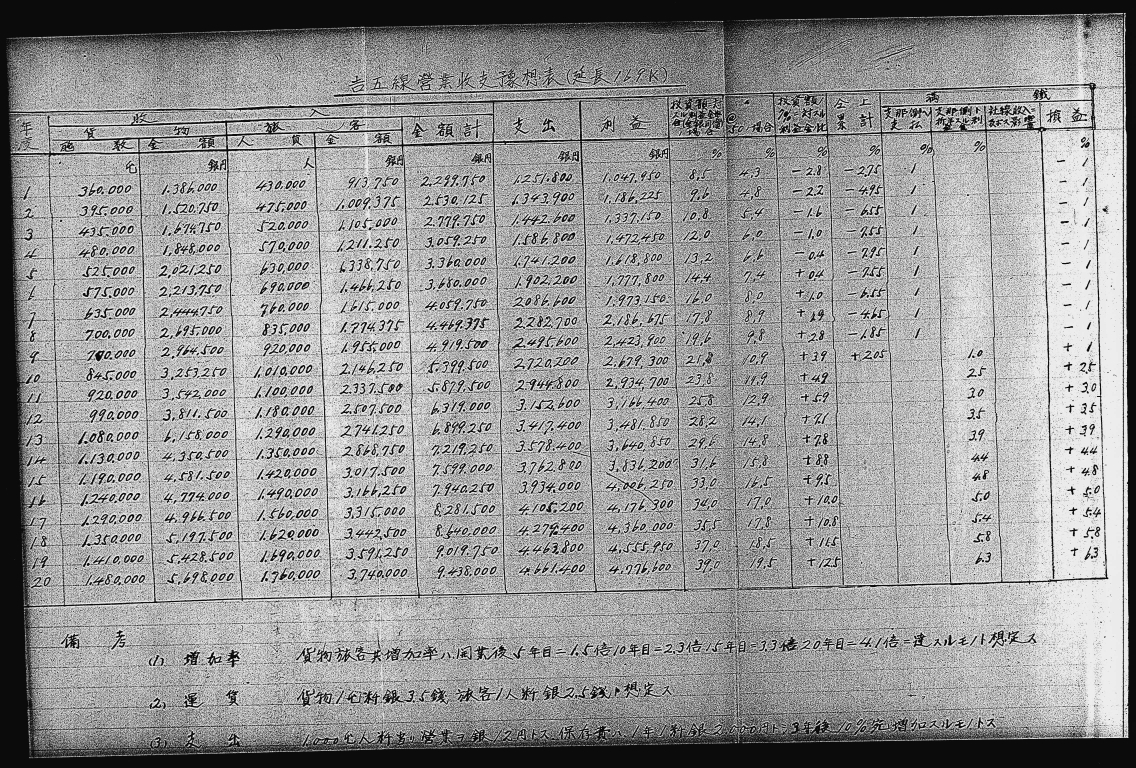 吉五線營業收支豫想表(延長169K)
年度 收入 支出 利益 投資額 仝上累計 滿鐵 損益
貨物 旅客 金額計
噸數 金額 人員 金額
瓲 銀円 人 銀円 銀円 銀円 銀円 % % % % % %
1 360,000 1,386,000 430,000 913,750 2,299,750 1,251,800 1,047,950 8.5 4.3 -2.8 -2.75 1 - 1
2 395,000 1,520,750 475,000 1,009,375 2,530,125 1,343,900 1,186,225 9.6 4.8 -2.2 -4.95 1 - 1
3 435,000 1,674,750 520,000 1,105,000 2,779,750 1,442,600 1,337,150 10.8 5.4 -1.6 -6.55 1 - 1
4 480,000 1,848,000 570,000 1,211,250 3,059,250 1,586,800 1,472,450 12.0 6.0 -1.0 -7.55 1 - 1
5 525,000 2,021,250 630,000 1,338,750 3,360,000 1,741,200 1,618,800 13.2 6.6 -0.4 -7.95 1 - 1
6 575,000 2,213,750 690,000 1,466,250 3,680,000 1,902,200 1,777,800 14.4 7.4 +0.4 -7.55 1 - 1
7 635,000 2,444,750 760,000 1,615,000 4,059,750 2,086,600 1,973,150 16.0 8.0 +1.0 -6.55 1 - 1
8 700,000 2,695,000 835,000 1,774,375 4,469,375 2,282,700 2,186,675 17.8 8.9 +1.9 -4.65 1 - 1
9 770,000 2,964,500 920,000 1,955,000 4,919,500 2,495,600 2,423,900 19.6 9.8 +2.8 -1.85 1 - 1
10 845,000 3,253,250 1,010,000 2,146,250 5,399,500 2,720,200 2,679,300 21.8 10.9 +3.9 +2.05 1.0 + 1
11 920,000 3,542,000 1,100,000 2,337,500 5,879,500 2,944,800 2,934,700 23.8 11.9 +4.9 2.5 + 2.5
12 990,000 3,811,500 1,180,000 2,507,500 6,319,000 3,152,600 3,166,400 25.8 12.9 +5.9 3.0 + 3.0
13 1,080,000 6,158,000 1,290,000 2,741,250 6,899,250 3,417,400 3,481,850 28.2 14.1 +7.1 3.5 + 3.5
14 1,130,000 4,350,500 1,350,000 2,868,750 7,219,250 3,578,400 3,640,850 29.6 14.8 +7.8 3.9 + 3.9
15 1,190,000 4,581,500 1,420,000 3,017,500 7,599,000 3,762,800 3,836,200 31.6 15.8 +8.8 4.4 + 4.4
16 1,240,000 4,774,000 1,490,000 3,166,250 7,940,250 3,934,000 4,006,250 33.0 16.5 +9.5 4.8 + 4.8
17 1,290,000 4,966,500 1,560,000 3,315,000 8,281,500 4,105,200 4,176,300 34.0 17.0 +10.0 5.0 + 5.0
18 1,350,000 5,197,500 1,620,000 3,442,500 8,640,000 4,279,400 4,360,000 35.5 17.8 +10.8 5.4 + 5.4
19 1,410,000 5,428,500 1,690,000 3,591,250 9,019,750 4,463,800 4,555,950 37.0 18.5 +11.5 5.8 + 5.8
20 1,480,000 5,698,000 1,760,000 3,740,000 9,438,000 4,661,400 4,776,600 39.0 19.5 +12.5 6.3 + 6.3
備考
(1) 增加率 貨物旅客共增加率ハ開業後5年目ニ1.5倍10年目ニ2.3倍15年目ニ3.3倍20年目ニ4.1倍ニ達スルモノト想定ス
(2) 運賃 貨物1瓲粁銀3.5錢 旅客1人粁銀2.5錢ト想定ス
(3) 支出 1,000瓲人粁當リ營業ヲ銀12円トス 保存費ハ1年1粁銀2,000円トシ3年後10%宛增加スルモノトス